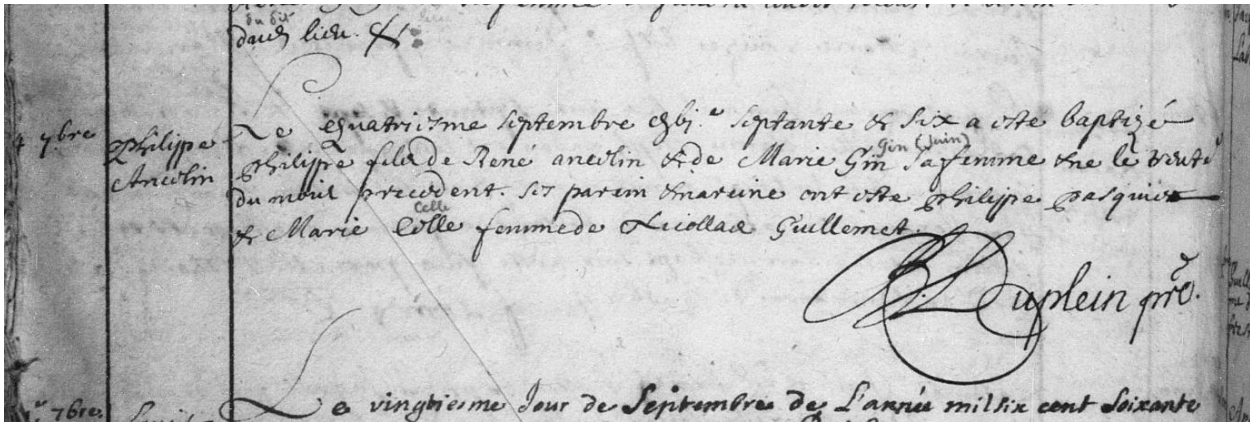 du dit
dud lieu. &
4 7bre
Philippe
Ancelin
Le quatriesme septembre septante & six a este baptizé
Gin (Juin)
Philippe fils de René ancelin & de Marie Gin sa femme & ne le trente
du mois precedent. Ses parein & mareine ont este Philippe pasquier
Celle
& Marie Celle femme de Nicollas Guillemet.
Duplein pre.
7bre.
Le vingtiesme Jour de Septembre de L'année mil six cent soixante